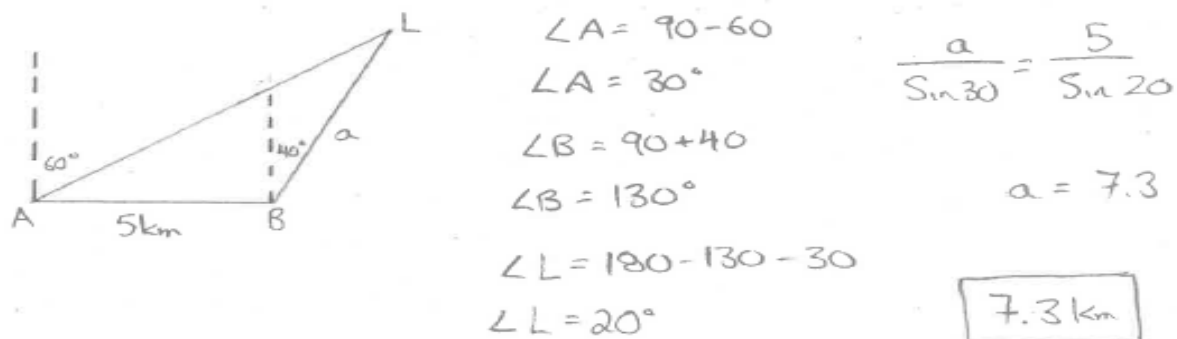 L
60°
40°
a
A
5km
B
∠A = 90-60
∠A = 30°
∠B = 90+40
∠B = 130°
∠L = 180-130-30
∠L = 20°
a/Sin30 = 5/Sin20
a = 7.3
7.3 km